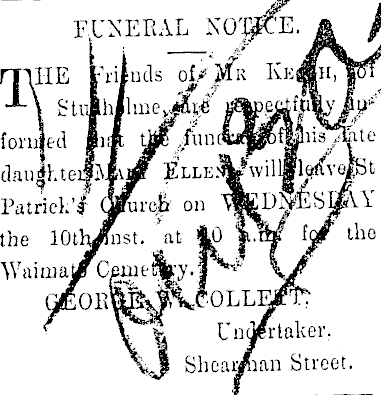 FUNERAL NOTICE.
THE Friends of MR KEOGH, of
Studholme, are respectfully in-
formed that the funeral of his late
daughter MARY ELLEN, will leave St
Patrick's Church on WEDNESDAY
the 10th inst. at 10 a.m. for the
Waimate Cemetery.
GEORGE W. COLLETT,
Undertaker.
Shearman Street.